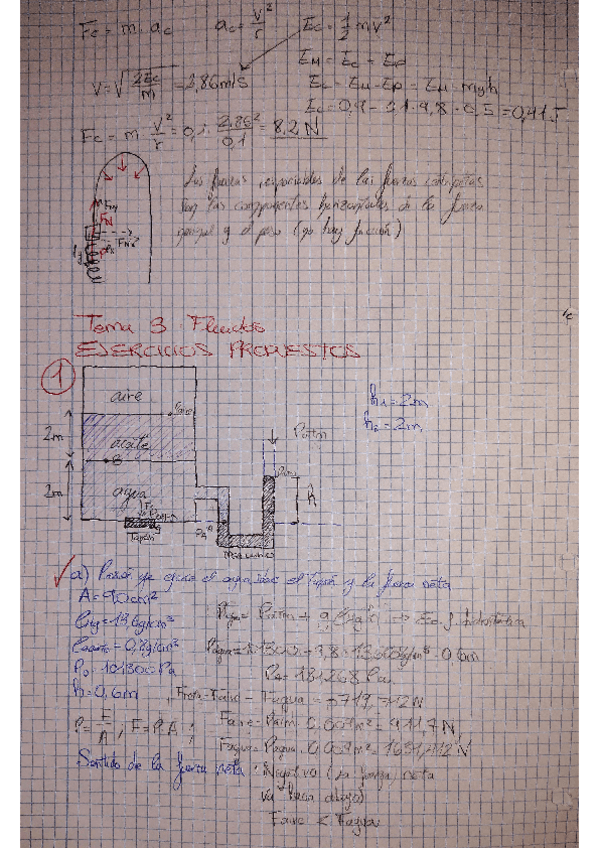 Fc = m · ac    ac = v²/r    Ec = 1/2 mv²
EM = Ec = Ep
v = √(2Ec/m) = 2,86 m/s    Ec = EM - Ep = EM - mgh
Ec = 0,9 - 0,1 · 9,8 · 0,5 = 0,41 J
Fc = m · v²/r = 0,1 · 2,86²/0,1 = 8,2 N
Las fuerzas responsables de las fuerzas centrípetas
son las componentes horizontales de la fuerza
normal y el peso (no hay fricción)
Tema 3 Fluidos
EJERCICIOS PROPUESTOS
1
aire
2m
aceite
B
2m
agua
Tapón
PA
Mercurio
Patm
h
h1 = 2m
h2 = 2m
a) Presión que ejerce el agua sobre el tapón y la fuerza neta
A = 90 cm²
ρHg = 13,6 g/cm³
ρaceite = 0,8 g/cm³
P0 = 101300 Pa
h = 0,6 m
· 0,6m
PA = 181268 Pa
- Faire - Fagua = -719,712 N
P = F/A ; F = P·A ;
Faire = Patm · 0,009 m² = 911,7 N
Fagua = Pagua · 0,009 m² = 1631,412 N
Sentido de la fuerza neta: Negativo (la fuerza neta
va hacia abajo)
Faire < Fagua